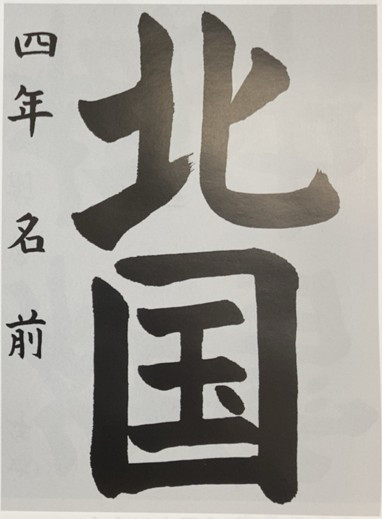 北国
四年 名前